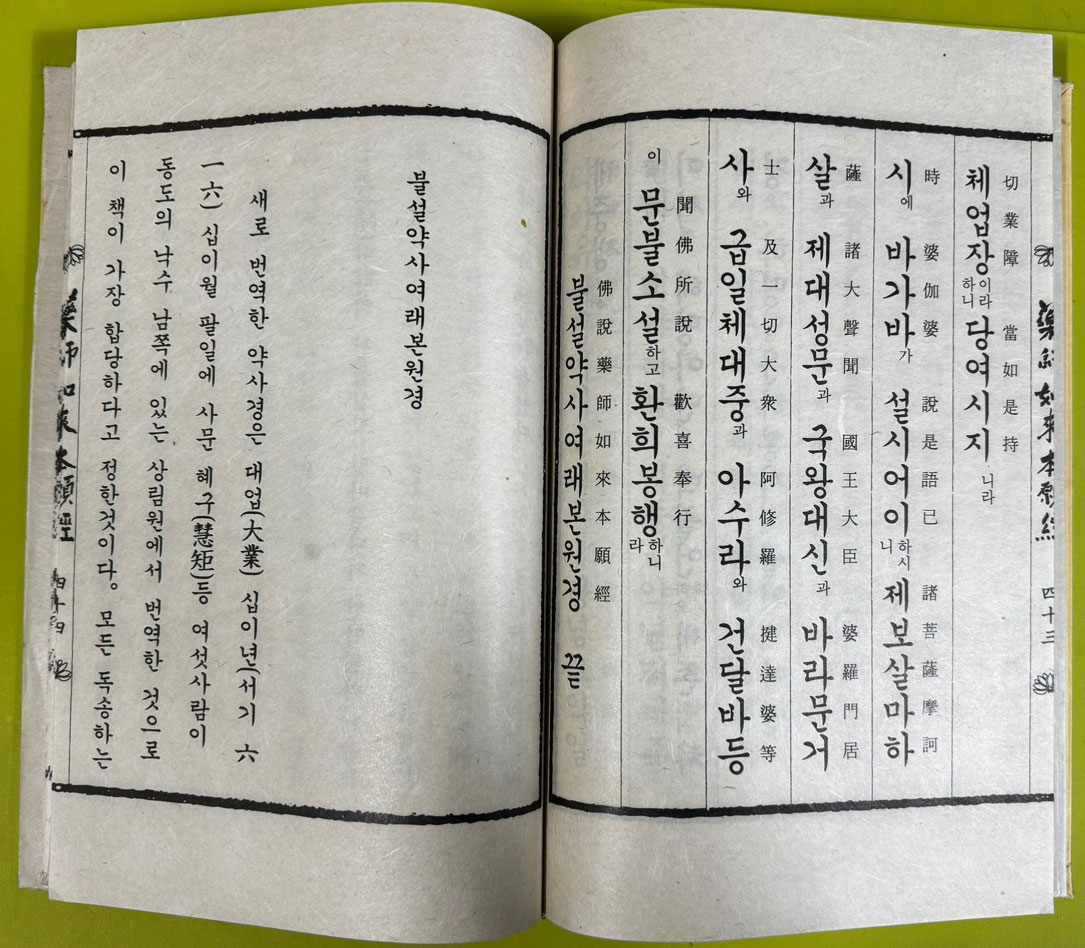 藥師如來本願經 四十三
切業障 當如是持
체업장이라하니 당여시지니라
時 婆伽婆 說是語已 諸菩薩摩訶
시에 바가바가 설시어이하시니 제보살마하
薩 諸大聲聞 國王大臣 婆羅門居
살과 제대성문과 국왕대신과 바라문거
士 及一切大衆 阿修羅 揵達婆等
사와 급일체대중과 아수라와 건달바등
聞佛所說 歡喜奉行
이 문불소설하고 환희봉행하니라
佛說藥師如來本願經
불설약사여래본원경 끝
불설약사여래본원경
새로 번역한 약사경은 대업(大業) 십이년(서기 六
一六) 십이월 팔일에 사문 혜구(慧矩)등 여섯사람이
동도의 낙수 남쪽에 있는 상림원에서 번역한 것으로
이 책이 가장 합당하다고 정한것이다。 모든 독송하는
藥師如來本願經 四十四